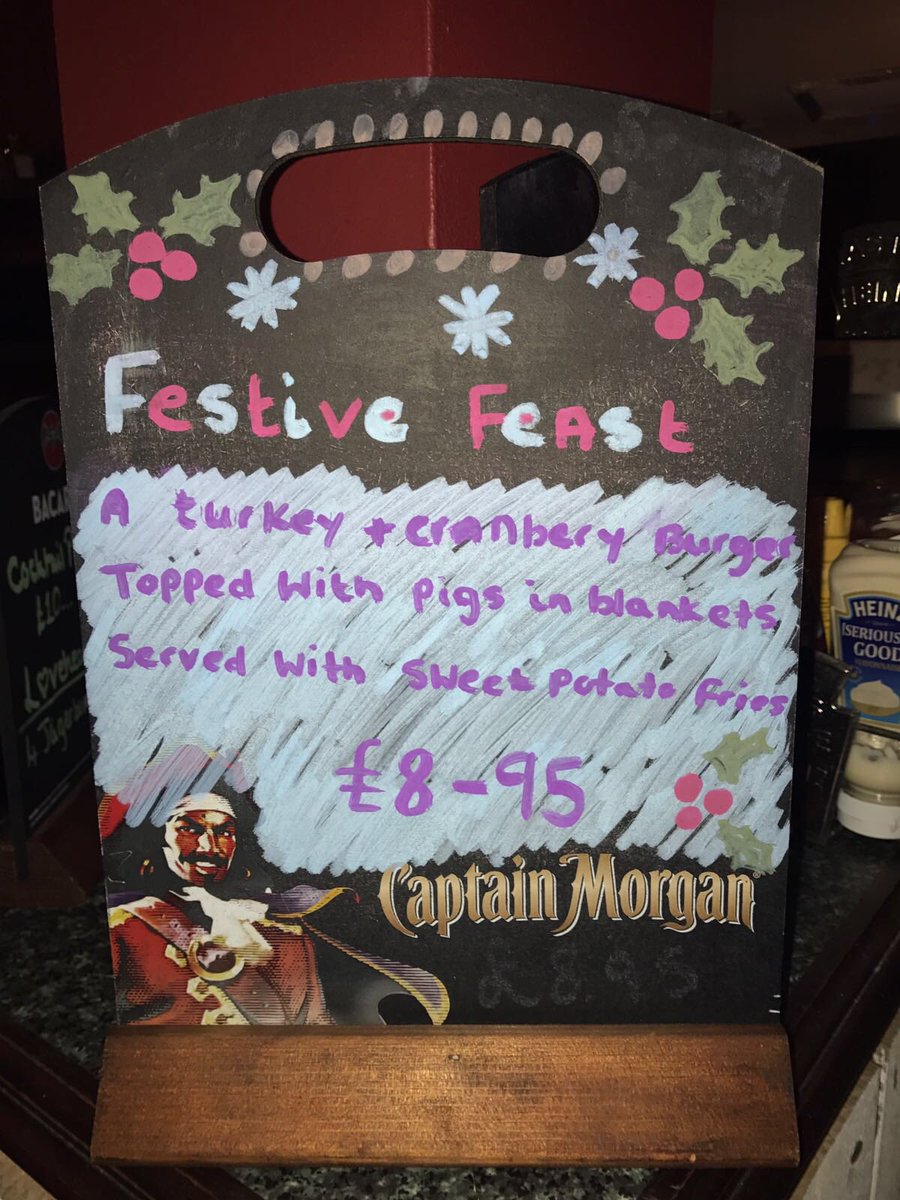 Festive Feast
A turkey + cranbery Burger
Topped with pigs in blankets
Served with sweet potato fries
£8-95
Captain Morgan
£8.95
BACAR
Cocktail
£10
4 Jager
HEINZ
[SERIOUSLY
GOOD]
MAYONNAISE